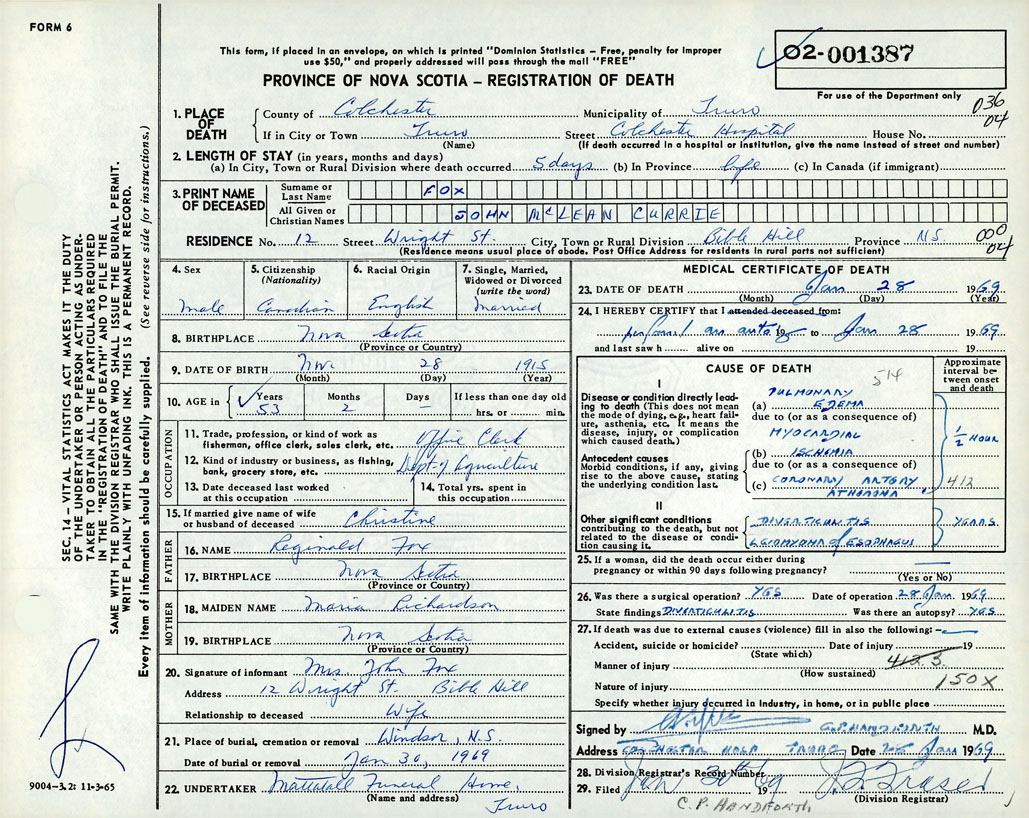 FORM 6
This form, if placed in an envelope, on which is printed "Dominion Statistics – Free, penalty for improper
use $50," and properly addressed will pass through the mail "FREE"
PROVINCE OF NOVA SCOTIA – REGISTRATION OF DEATH
02-001387
For use of the Department only
036
04
1. PLACE OF DEATH
County of Colchester Municipality of Truro
If in City or Town Truro Street Colchester Hospital House No.
(Name) (If death occurred in a hospital or institution, give the name instead of street and number)
2. LENGTH OF STAY (in years, months and days)
(a) In City, Town or Rural Division where death occurred 5 days (b) In Province life (c) In Canada (if immigrant)
3. PRINT NAME OF DECEASED
Surname or Last Name FOX
All Given or Christian Names JOHN McLEAN CURRIE
RESIDENCE No. 12 Street Wright St. City, Town or Rural Division Bible Hill Province N.S.
000
04
(Residence means usual place of abode. Post Office Address for residents in rural parts not sufficient)
4. Sex
male
5. Citizenship
(Nationality)
Canadian
6. Racial Origin
English
7. Single, Married,
Widowed or Divorced
(write the word)
Married
8. BIRTHPLACE Nova Scotia
(Province or Country)
9. DATE OF BIRTH Nov. 28 1915
(Month) (Day) (Year)
10. AGE in
Years 53
Months 2
Days –
If less than one day old
hrs. or min.
OCCUPATION
11. Trade, profession, or kind of work as
fisherman, office clerk, sales clerk, etc. Office Clerk
12. Kind of industry or business, as fishing,
bank, grocery store, etc. Dept. of Agriculture
13. Date deceased last worked
at this occupation
14. Total yrs. spent in
this occupation
15. If married give name of wife
or husband of deceased Christine
FATHER
16. NAME Reginald Fox
17. BIRTHPLACE Nova Scotia
(Province or Country)
MOTHER
18. MAIDEN NAME Maria Richardson
19. BIRTHPLACE Nova Scotia
(Province or Country)
20. Signature of informant Mrs. John Fox
Address 12 Wright St. Bible Hill
Relationship to deceased Wife
21. Place of burial, cremation or removal Windsor, N.S.
Date of burial or removal Jan 30, 1969
22. UNDERTAKER Mattatall Funeral Home,
(Name and address) Truro
MEDICAL CERTIFICATE OF DEATH
23. DATE OF DEATH Jan 28 1969
(Month) (Day) (Year)
24. I HEREBY CERTIFY that I attended deceased from:
19 to Jan 28 1969
and last saw h alive on 19
CAUSE OF DEATH
514
Approximate
interval be-
tween onset
and death
I
Disease or condition directly lead-
ing to death (This does not mean
the mode of dying, e.g., heart fail-
ure, asthenia, etc. It means the
disease, injury, or complication
which caused death.)
PULMONARY
(a) EDEMA
due to (or as a consequence of)
MYOCARDIAL
(b) ISCHEMIA
due to (or as a consequence of)
(c) CORONARY ARTERY
ATHEROMA
1/2 HOUR
412
Antecedent causes
Morbid conditions, if any, giving
rise to the above cause, stating
the underlying condition last.
II
Other significant conditions
contributing to the death, but not
related to the disease or condi-
tion causing it.
DIVERTICULITIS
LEIOMYOMA of ESOPHAGUS
YEARS
25. If a woman, did the death occur either during
pregnancy or within 90 days following pregnancy?
(Yes or No)
26. Was there a surgical operation? YES Date of operation 28 Jan 1969
State findings DIVERTICULITIS Was there an autopsy? YES
27. If death was due to external causes (violence) fill in also the following:
Accident, suicide or homicide? Date of injury 19
(State which)
412.3
Manner of injury
(How sustained)
150X
Nature of injury
Specify whether injury occurred in industry, in home, or in public place
Signed by C.P. HANDFORTH M.D.
Address TRURO Date 28 Jan 1969
28. Division Registrar's Record Number
29. Filed Jan 30th 1969
(Division Registrar)
C. P. HANDFORTH
SEC. 14 – VITAL STATISTICS ACT MAKES IT THE DUTY
OF THE UNDERTAKER OR PERSON ACTING AS UNDER-
TAKER TO OBTAIN ALL THE PARTICULARS REQUIRED
IN THE "REGISTRATION OF DEATH" AND TO FILE THE
SAME WITH THE DIVISION REGISTRAR WHO SHALL ISSUE THE BURIAL PERMIT.
WRITE PLAINLY WITH UNFADING INK. THIS IS A PERMANENT RECORD.
Every item of information should be carefully supplied. (See reverse side for instructions.)
9004-3.2: 11-3-65